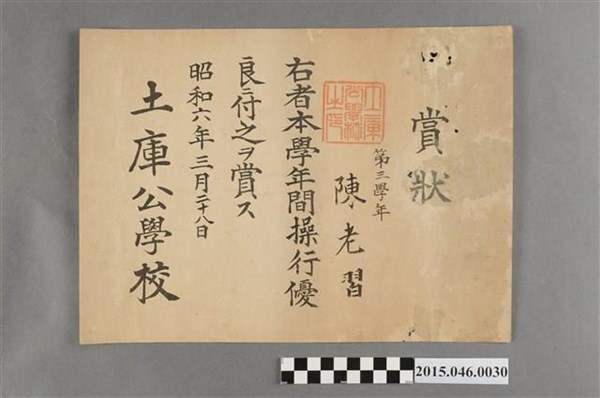 賞狀
第三學年
陳老習
土庫
公學校
之印
右者本學年間操行優
良ニ付之ヲ賞ス
昭和六年三月二十八日
土庫公學校
2015.046.0030